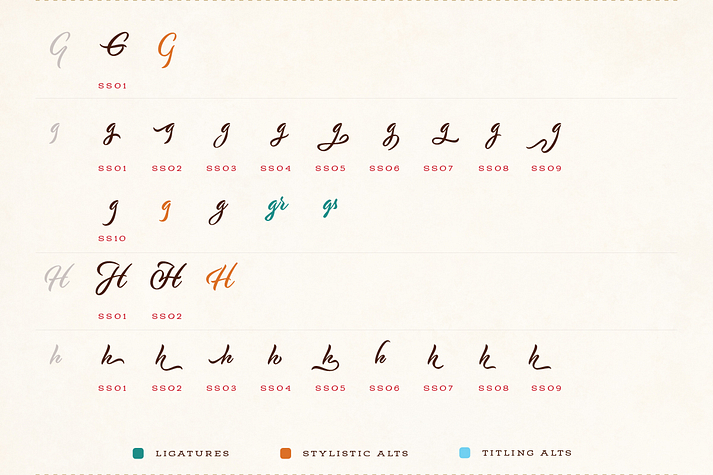 G G G
SS01
g g g g g g g g g g
SS01 SS02 SS03 SS04 SS05 SS06 SS07 SS08 SS09
g g g gr gs
SS10
H H H H
SS01 SS02
h h h h h h h h h h
SS01 SS02 SS03 SS04 SS05 SS06 SS07 SS08 SS09
LIGATURES STYLISTIC ALTS TITLING ALTS